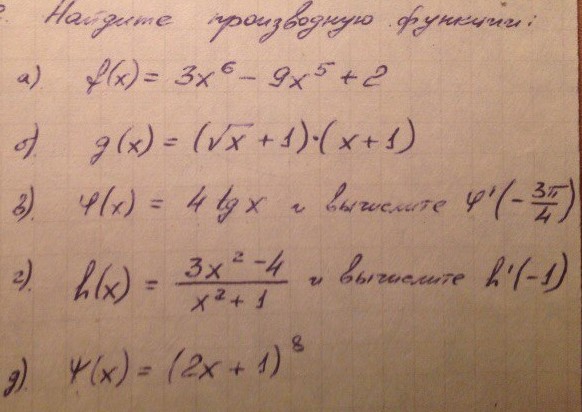 Найдите производную функции:
а) f(x) = 3x⁶ - 9x⁵ + 2
б). g(x) = (√x + 1)·(x + 1)
в). φ(x) = 4 tg x и вычислите φ'(-3π/4)
г). h(x) = (3x² - 4)/(x² + 1) и вычислите h'(-1)
д). ψ(x) = (2x + 1)⁸